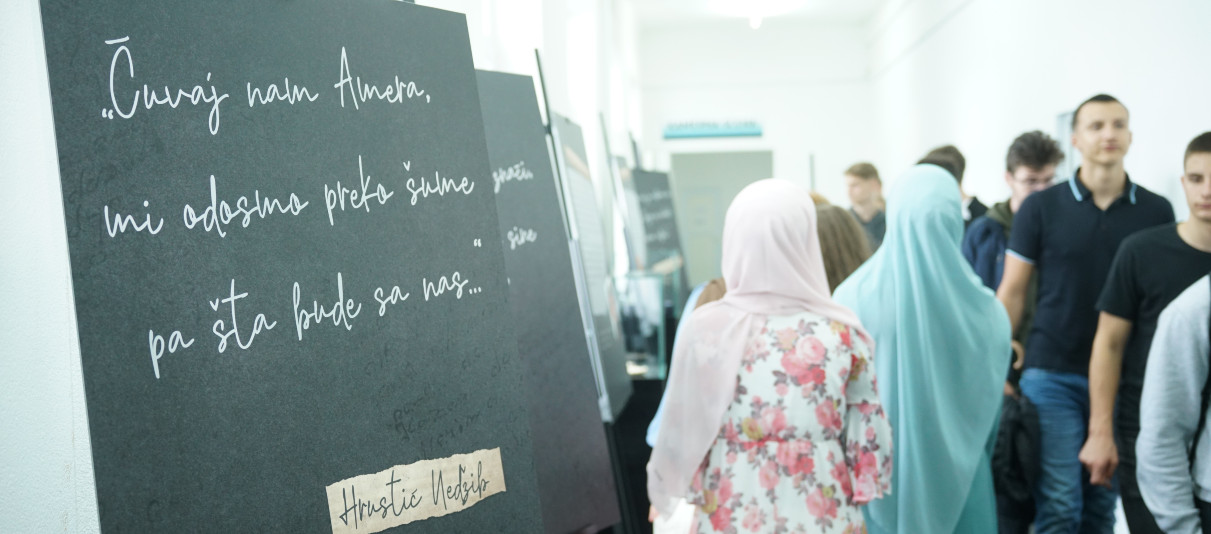 „Čuvaj nam Amera,
mi odosmo preko šume
pa šta bude sa nas...“
Hrustić Nedžib
znači,
sine